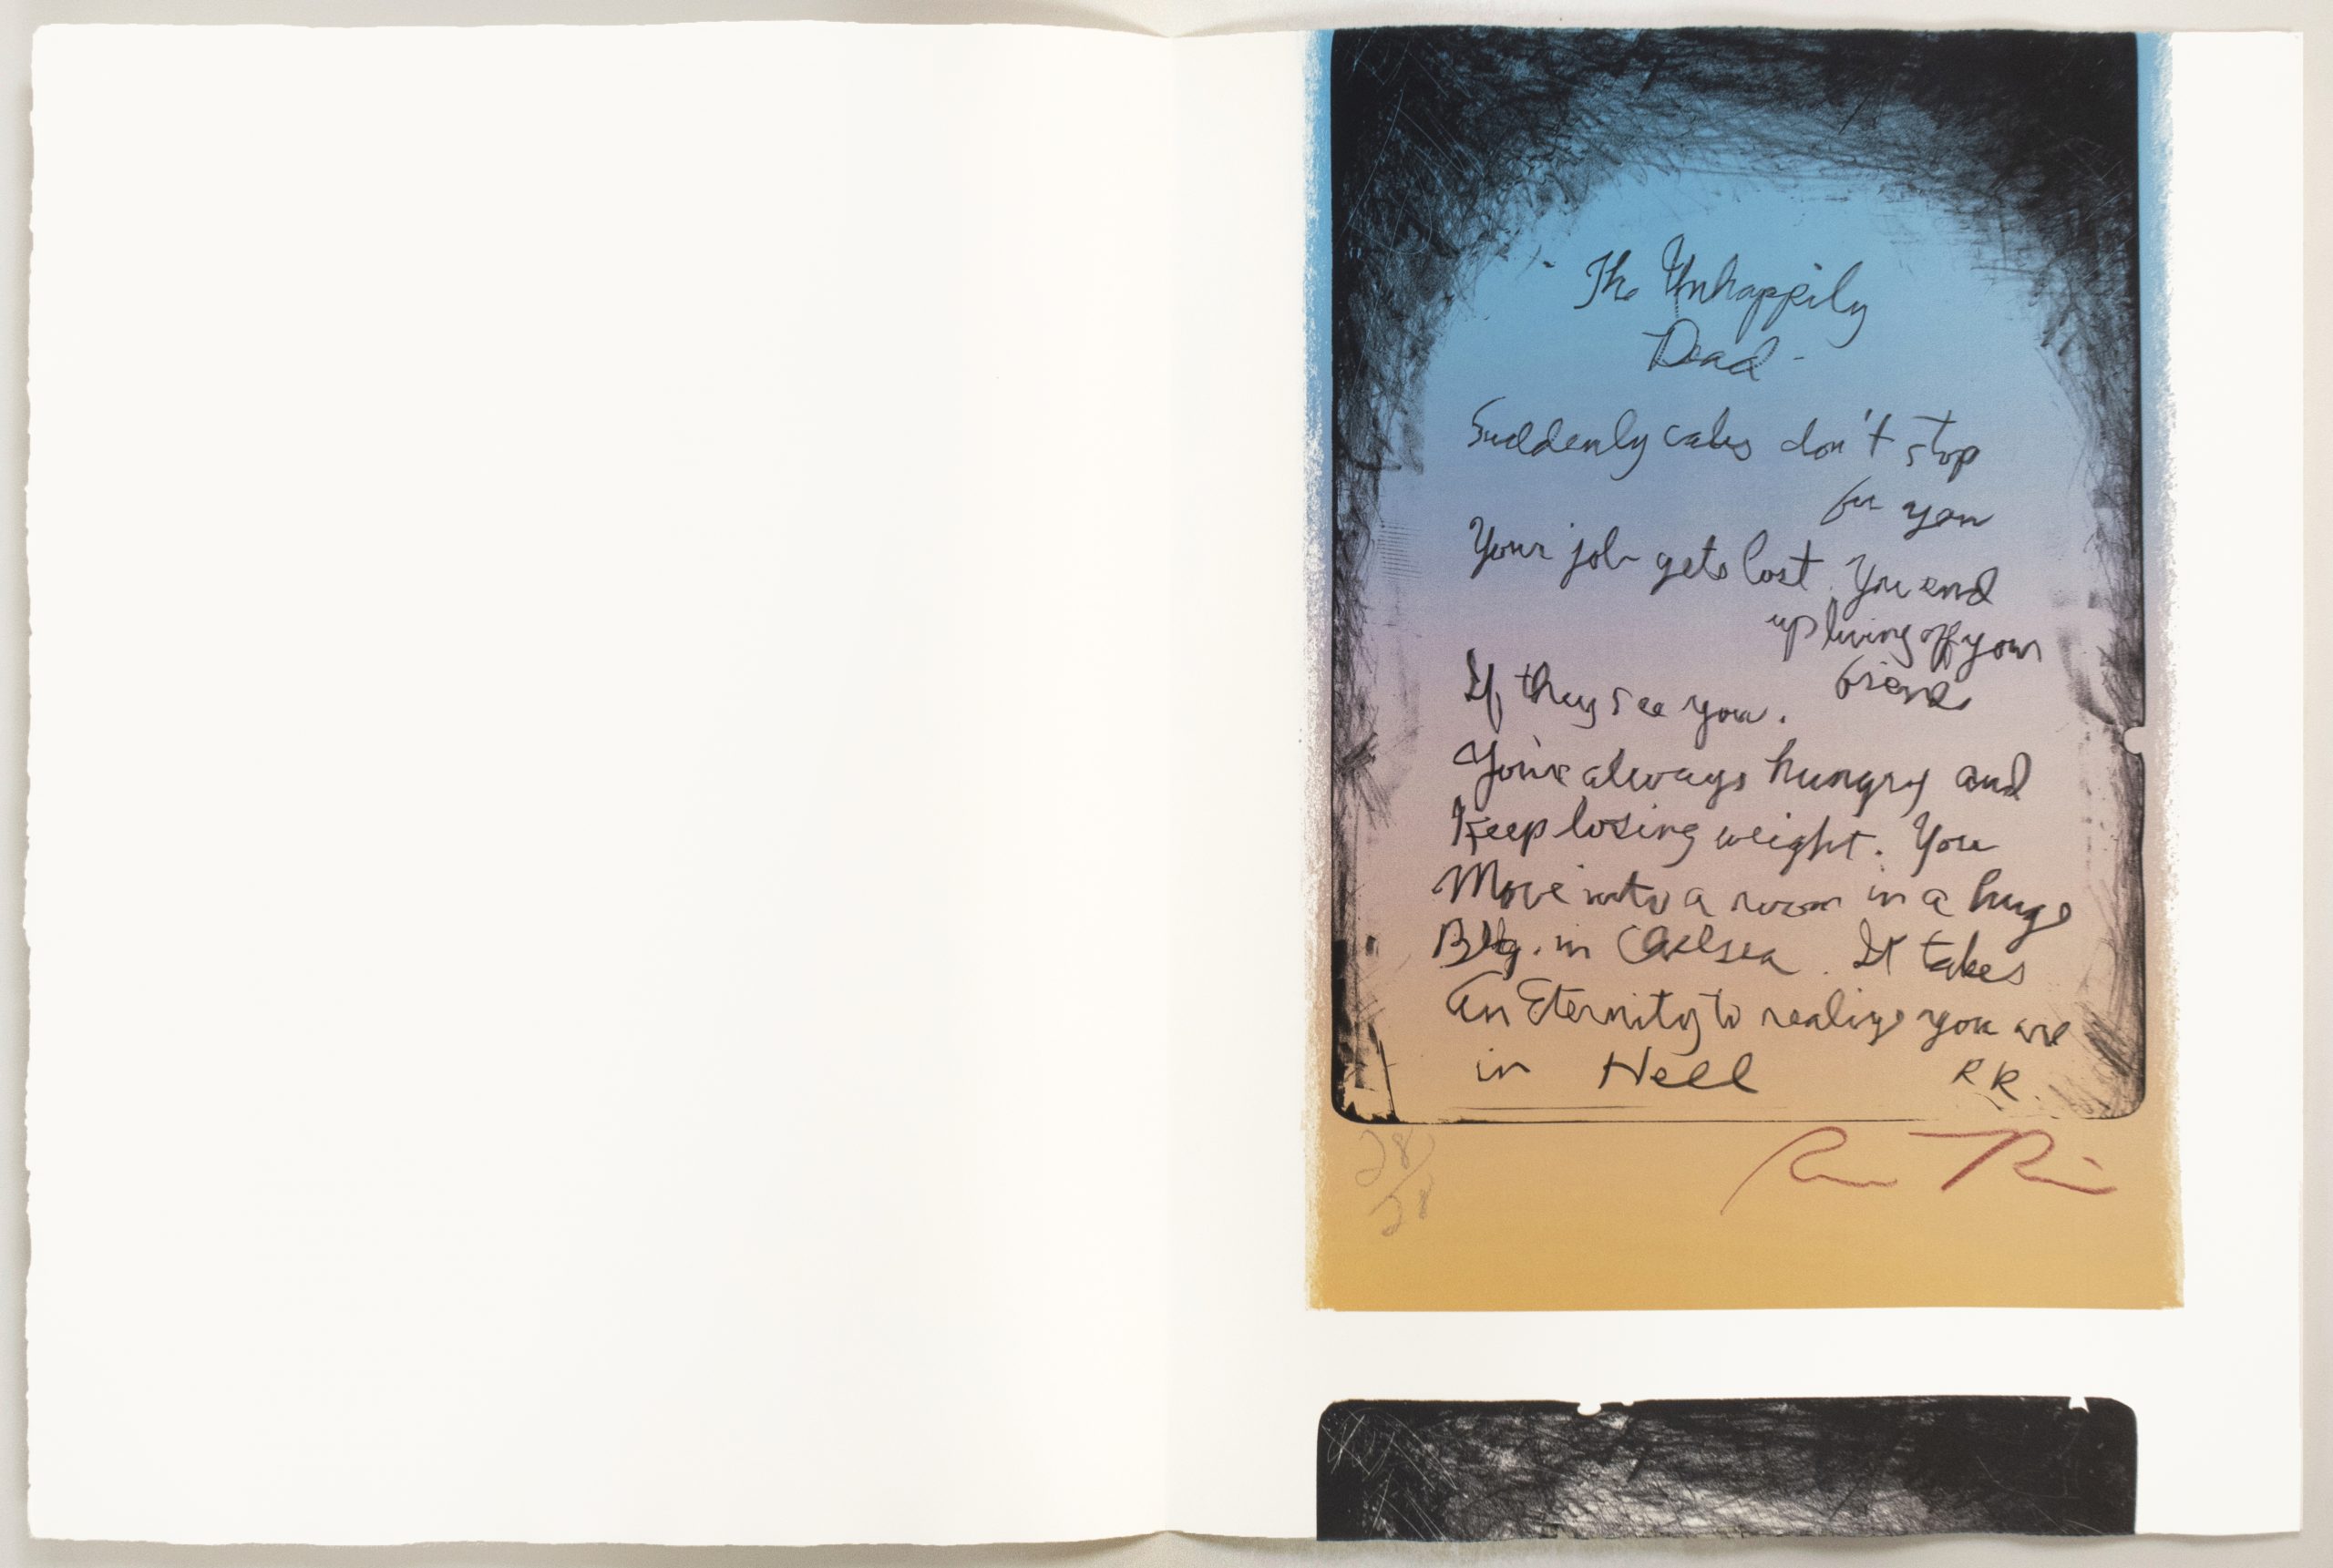 - The Unhappily
Dead -
Suddenly cabs don't stop
for you
Your job gets lost. You end
up living off your
friends
If they see you.
You're always hungry and
Keep losing weight. You
Move into a room in a huge
Bldg. in Chelsea. It takes
An Eternity to realize you are
in Hell
RR.
28/28